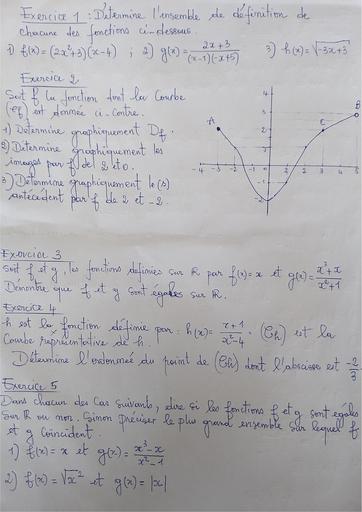 Exercice 1 : Détermine l'ensemble de définition de
chacune des fonctions ci-dessous.
1) f(x)=(2x²+3)(x-4) ; 2) g(x)= (2x+3)/((x-1)(-x+5)) 3) h(x)=√(-3x+3)
Exercice 2
Soit f la fonction dont la Courbe
(Cf) est donnée ci-contre.
1) Détermine graphiquement Df.
2) Détermine graphiquement les
images par f de 2 et 0.
3) Détermine graphiquement le(s)
antécédent par f de 2 et -2.
A
C
B
Exercice 3
Soit f et g, les fonctions définies sur ℝ par f(x)=x et g(x)= (x³+x)/(x²+1)
Démontre que f et g sont égales sur ℝ.
Exercice 4
h est la fonction définie par : h(x)= (x+1)/(x²-4). (Ch) est la
Courbe représentative de h.
Détermine l'ordonnée du point de (Ch) dont l'abscisse est -2/3
Exercice 5
Dans chacun des Cas suivants, dire si les fonctions f et g sont égales
sur ℝ ou non. Sinon préciser le plus grand ensemble sur lequel f
et g coïncident.
1) f(x)=x et g(x)= (x³-x)/(x²-1)
2) f(x)=√x² et g(x)=|x|